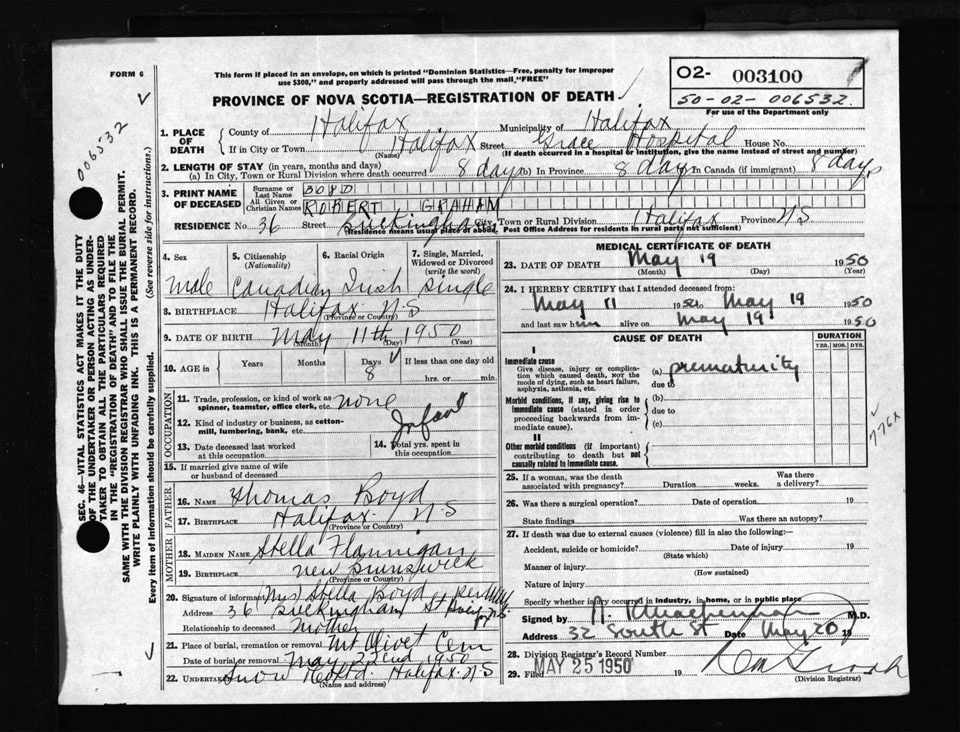 FORM 6
This form if placed in an envelope, on which is printed "Dominion Statistics—Free, penalty for improper
use $300," and properly addressed will pass through the mail "FREE"
02- 003100
50-02-006532
For use of the Department only
PROVINCE OF NOVA SCOTIA—REGISTRATION OF DEATH
006532
1. PLACE OF DEATH
County of Halifax Municipality of Halifax
If in City or Town Halifax Street Grace Hospital House No.
(Name) (If death occurred in a hospital or institution, give the name instead of street and number)
2. LENGTH OF STAY (in years, months and days)
(a) In City, Town or Rural Division where death occurred 8 days (b) In Province 8 days (c) In Canada (if immigrant) 8 days
3. PRINT NAME OF DECEASED
Surname or Last Name BOYD
All Given or Christian Names ROBERT GRAHAM
RESIDENCE No. 36 Street Buckingham City, Town or Rural Division Halifax Province N.S
(Residence means usual place of abode. Post Office Address for residents in rural parts not sufficient)
4. Sex 5. Citizenship (Nationality) 6. Racial Origin 7. Single, Married, Widowed or Divorced (write the word)
Male Canadian Irish Single
8. BIRTHPLACE Halifax N.S
(Province or Country)
9. DATE OF BIRTH May 11th 1950
(Month) (Day) (Year)
10. AGE in Years Months Days 8 If less than one day old
hrs. or min.
OCCUPATION
11. Trade, profession, or kind of work as
spinner, teamster, office clerk, etc. none
12. Kind of industry or business, as cotton-
mill, lumbering, bank, etc. Infant
13. Date deceased last worked
at this occupation
14. Total yrs. spent in
this occupation
15. If married give name of wife
or husband of deceased
FATHER
16. NAME Thomas Boyd
17. BIRTHPLACE Halifax N.S
(Province or Country)
MOTHER
18. MAIDEN NAME Stella Flannigan
19. BIRTHPLACE New Brunswick
(Province or Country)
20. Signature of informant Mrs Stella Boyd
Address 36 Buckingham St Halifax N.S
Relationship to deceased Mother
21. Place of burial, cremation or removal Mt Olivet Cem
Date of burial or removal May 22nd 1950
22. UNDERTAKER Snow & Co Ltd. Halifax N.S
(Name and address)
MEDICAL CERTIFICATE OF DEATH
23. DATE OF DEATH May 19 1950
(Month) (Day) (Year)
24. I HEREBY CERTIFY that I attended deceased from:
May 11 1950 to May 19 1950
and last saw him alive on May 19 1950
CAUSE OF DEATH
DURATION
YRS. MOS. DYS.
I
Immediate cause
Give disease, injury or complica-
tion which caused death, NOT the
mode of dying, such as heart failure,
asphyxia, asthenia, etc.
(a) prematurity
due to
Morbid conditions, if any, giving rise to
immediate cause (stated in order
proceeding backwards from im-
mediate cause).
(b)
due to
(c)
II
Other morbid conditions (if important)
contributing to death but not
causally related to immediate cause.
776X
25. If a woman, was the death
associated with pregnancy? Duration weeks. Was there
a delivery?
26. Was there a surgical operation? Date of operation 19
State findings Was there an autopsy?
27. If death was due to external causes (violence) fill in also the following:—
Accident, suicide or homicide? Date of injury 19
(State which)
Manner of injury
(How sustained)
Nature of injury
Specify whether injury occurred in industry, in home, or in public place
Signed by M.D.
Address 32 South St Date May 20 19
28. Division Registrar's Record Number
29. Filed MAY 25 1950 19
(Division Registrar)
SEC. 46—VITAL STATISTICS ACT MAKES IT THE DUTY
OF THE UNDERTAKER OR PERSON ACTING AS UNDER-
TAKER TO OBTAIN ALL THE PARTICULARS REQUIRED
IN THE "REGISTRATION OF DEATH" AND TO FILE THE
SAME WITH THE DIVISION REGISTRAR WHO SHALL ISSUE THE BURIAL PERMIT.
WRITE PLAINLY WITH UNFADING INK. THIS IS A PERMANENT RECORD.
Every item of information should be carefully supplied. (See reverse side for instructions.)